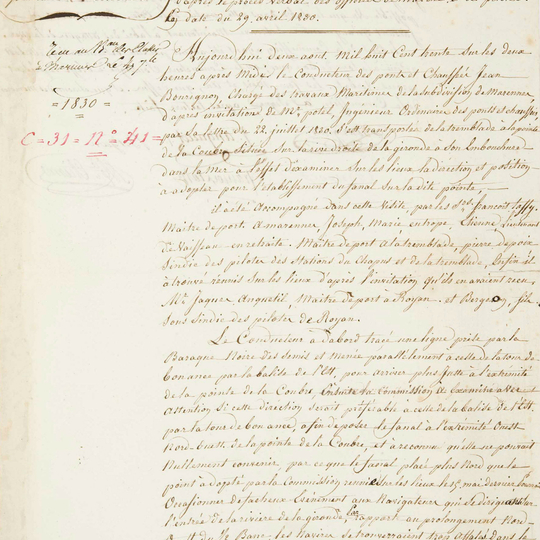 du 29 avril 1830.
= 1830 =
C = 31 = N° = 41 =
Aujourd'hui deux aout, Mil huit Cent trente sur les deux
heures après Midi le Conducteur des ponts et Chaussées Jean
Bourignon Chargé des travaux Maritimes de la Subdivision de Marennes
d'après invitation de Mr. potel, Ingénieur Ordinaire des ponts et chaussées,
par sa lettre du 22 juillet 1830. S'est transporté de la tremblade à la pointe
de la Coubre Située Sur la rive droite de la gironde à Son Embouchure
dans la Mer à l'effet d'examiner Sur les lieux la direction et position
à adopter pour l'établissement du fanal Sur la dite pointe,
il a été accompagné dans cette Visite, par les Srs. francois
Maitre de port à marennes, Joseph, Marie, entrope, Etienne Lieutenant
de Vaisseau en retraite. Maitre de port à la tremblade, pierre
Sindic des pilotes des Stations du Chapus et de la tremblade, Enfin il
à trouvé réunis Sur les lieux d'après l'invitation qu'ils en avaient recu,
Mr. Jaques Anquetil, Maitre de port à Royan. et Bergeon, fils
Sous Sindic des pilotes de Royan.
Le Conducteur à d'abord tracé une ligne prise par la
Baraque Noire des Semis et menée parallèlement à celle de la tour de
bonance par la balise de l'Est, pour arriver plus Juste à l'extrémité
de la pointe de la Coubre, Ensuite la Commission a Examiné avec
attention Si cette direction Serait préférable à celle de la balise de l'Est.
par la tour de bonance, afin de poser le fanal à l'extrémité Ouest
Nord-Ouest de la pointe de la Coubre, et à reconnu qu'elle ne pouvait
Nullement convenir, par ce que le fanal placé plus Nord que le
point adopté par la Commission réunie Sur les lieux le 15 mai dernier
Occasionner de facheux Evénement aux Navigateurs qui Se dirigent sur
l'entrée de la rivière de la gironde, par rapport au prolongement Nord-
du Banc, les navires Se trouveraient trop affalés dans le